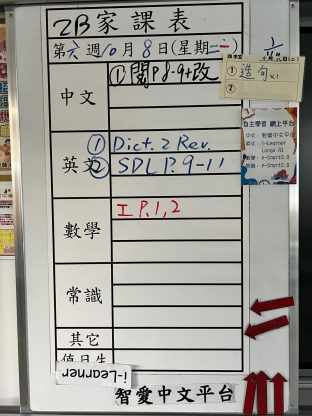 2B家課表
第六週10月8日(星期二)
中文
①閱P.8-9+改
①造句x1
②
英文
①Dict.2 Rev.
②SDL P.9-11
自主學習 網上平台
中文: 智愛中文平台
i-Learner
數學
工P.1,2
常識
其它
值日生
i-Learner
智愛中文平台